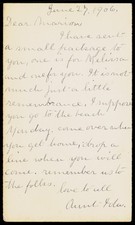 June 27, 1906.
Dear Marion:
I have sent
a small package to
you, one is for
and one for you. It is not
much just a little
remembrance. I suppose
you go to the beach
Sunday, come over when
you get home, drop a
line when you will
come. remember us to
the folks. love to all
Aunt